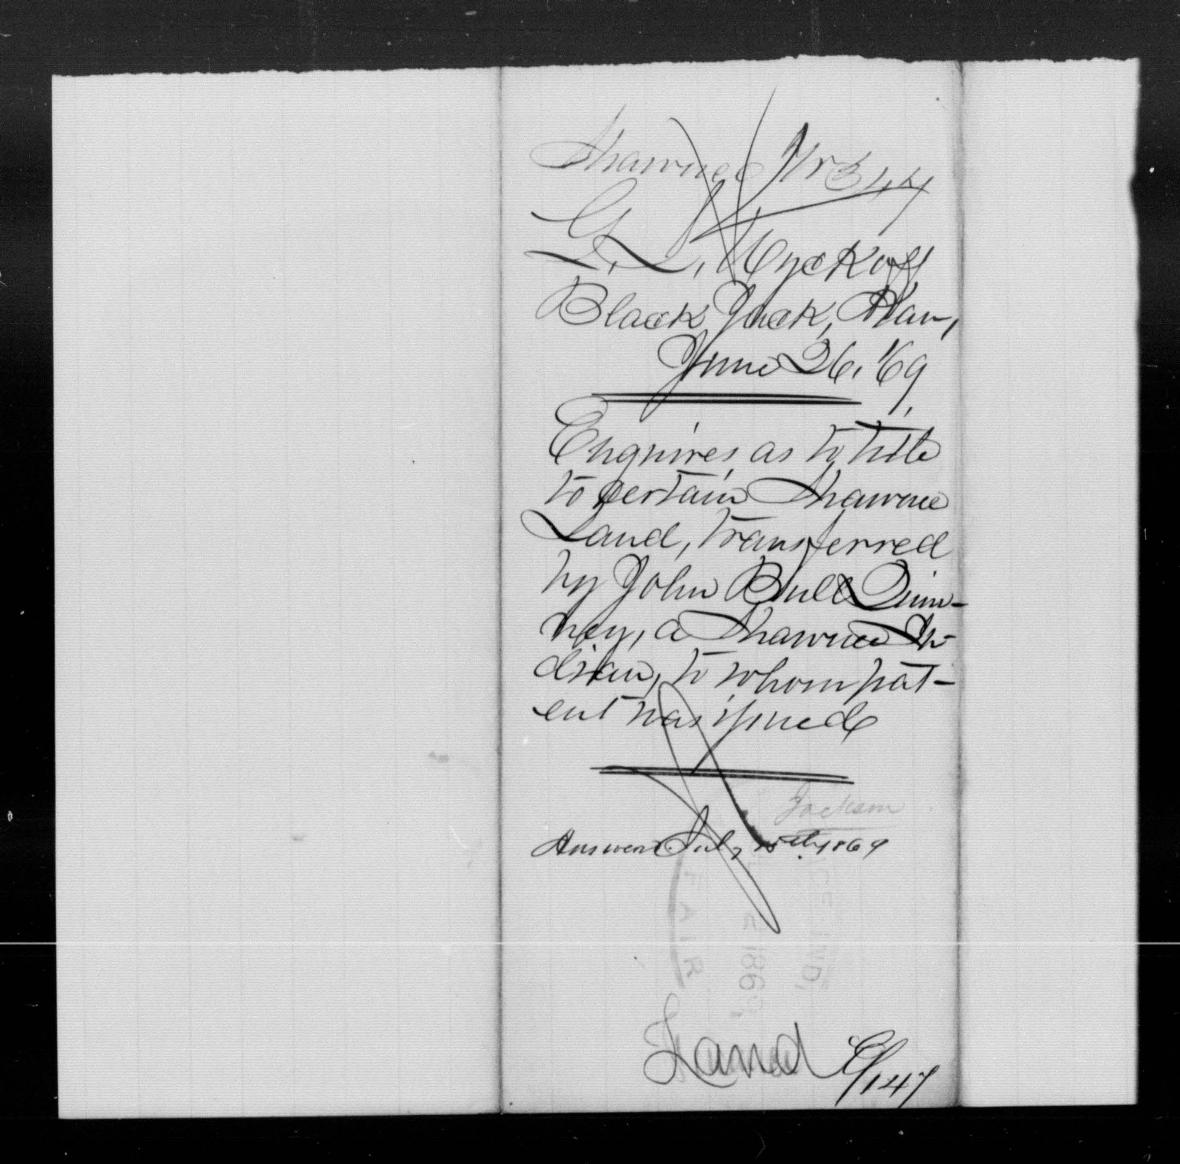 Shawnee W 344
G. L. Wyckoff
Black Jack, Kan,
June 26, '69
Enquires as to title
to certain Shawnee
Land, transferred
by John Bull Quin-
ney, a Shawnee In-
dian, to whom pat-
ent was issued
Jackson
Answered July 15th 1869
Land